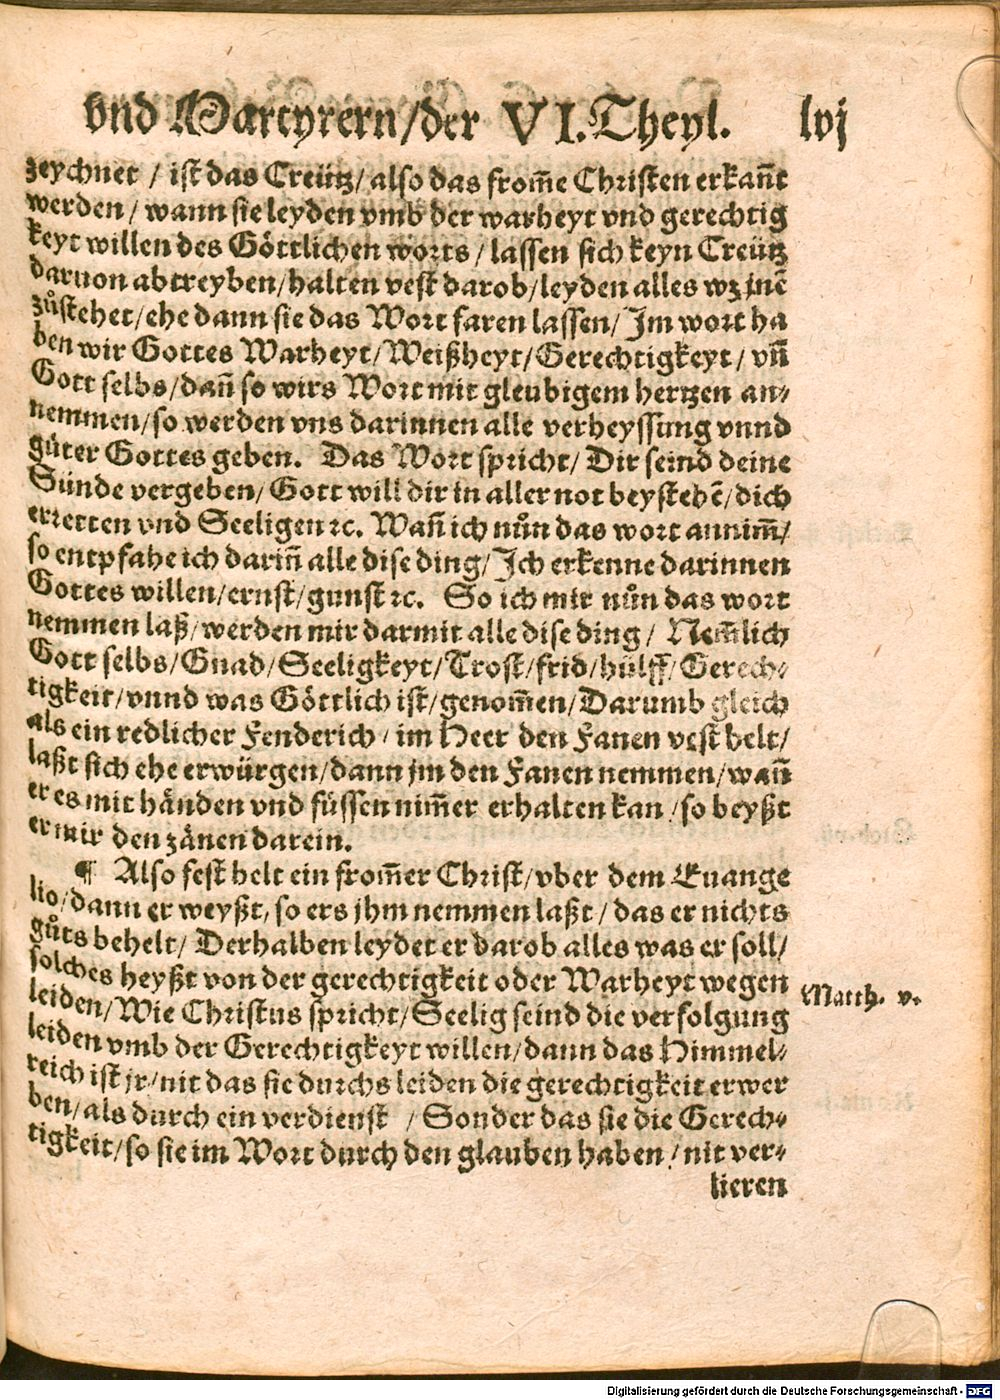 vnd Martyrern/der VI. Theyl. lvj
zeychnet / ist das Creütz/ also das from̃e Christen erkañt
werden / wann sie leyden vmb der warheyt vnd gerechtig
keyt willen des Göttlichen worts / lassen sich keyn Creütz
daruon abtreyben/halten vest darob/leyden alles wz jnẽ
zůstehet/ehe dann sie das Wort faren lassen/Im wort ha
ben wir Gottes Warheyt/Weißheyt/Gerechtigkeyt/ vñ
Gott selbs/dañ so wirs Wort mit gleubigem hertzen an-
nemmen/so werden vns darinnen alle verheyssung vnnd
gůter Gottes geben. Das Wort spricht/ Dir seind deine
Sünde vergeben/Gott will dir in aller not beystehẽ/dich
erretten vnd Seeligen ꝛc. Wañ ich nůn das wort annim̃/
so entpfahe ich dariñ alle dise ding/Ich erkenne darinnen
Gottes willen/ernst/gunst ꝛc. So ich mir nůn das wort
nemmen laß/werden mir darmit alle dise ding / Nem̃lich
Gott selbs/Gnad/Seeligkeyt/Trost/frid/hülff/Gerech-
tigkeit/vnnd was Göttlich ist/genom̃en/Darumb gleich
als ein redlicher Fenderich / im Heer den Fanen vest helt/
laßt sich ehe erwürgen/dann jm den Fanen nemmen/wañ
er es mit händen vnd füssen nim̃er erhalten kan / so beyßt
er mir den zänen darein.
¶ Also fest helt ein from̃er Christ/vber dem Euange
lio/dann er weyßt, so ers jhm nemmen laßt / das er nichts
gůts behelt/ Derhalben leydet er darob alles was er soll/
solches heyßt von der gerechtigkeit oder Warheyt wegen
leiden/Wie Christus spricht/Seelig seind die verfolgung
leiden vmb der Gerechtigkeyt willen/dann das Himmel-
reich ist jr/nit das sie durchs leiden die gerechtigkeit erwer
ben/als durch ein verdienst / Sonder das sie die Gerech-
tigkeit/so sie im Wort durch den glauben haben / nit ver-
lieren
Matth. v.
Digitalisierung gefördert durch die Deutsche Forschungsgemeinschaft - DFG